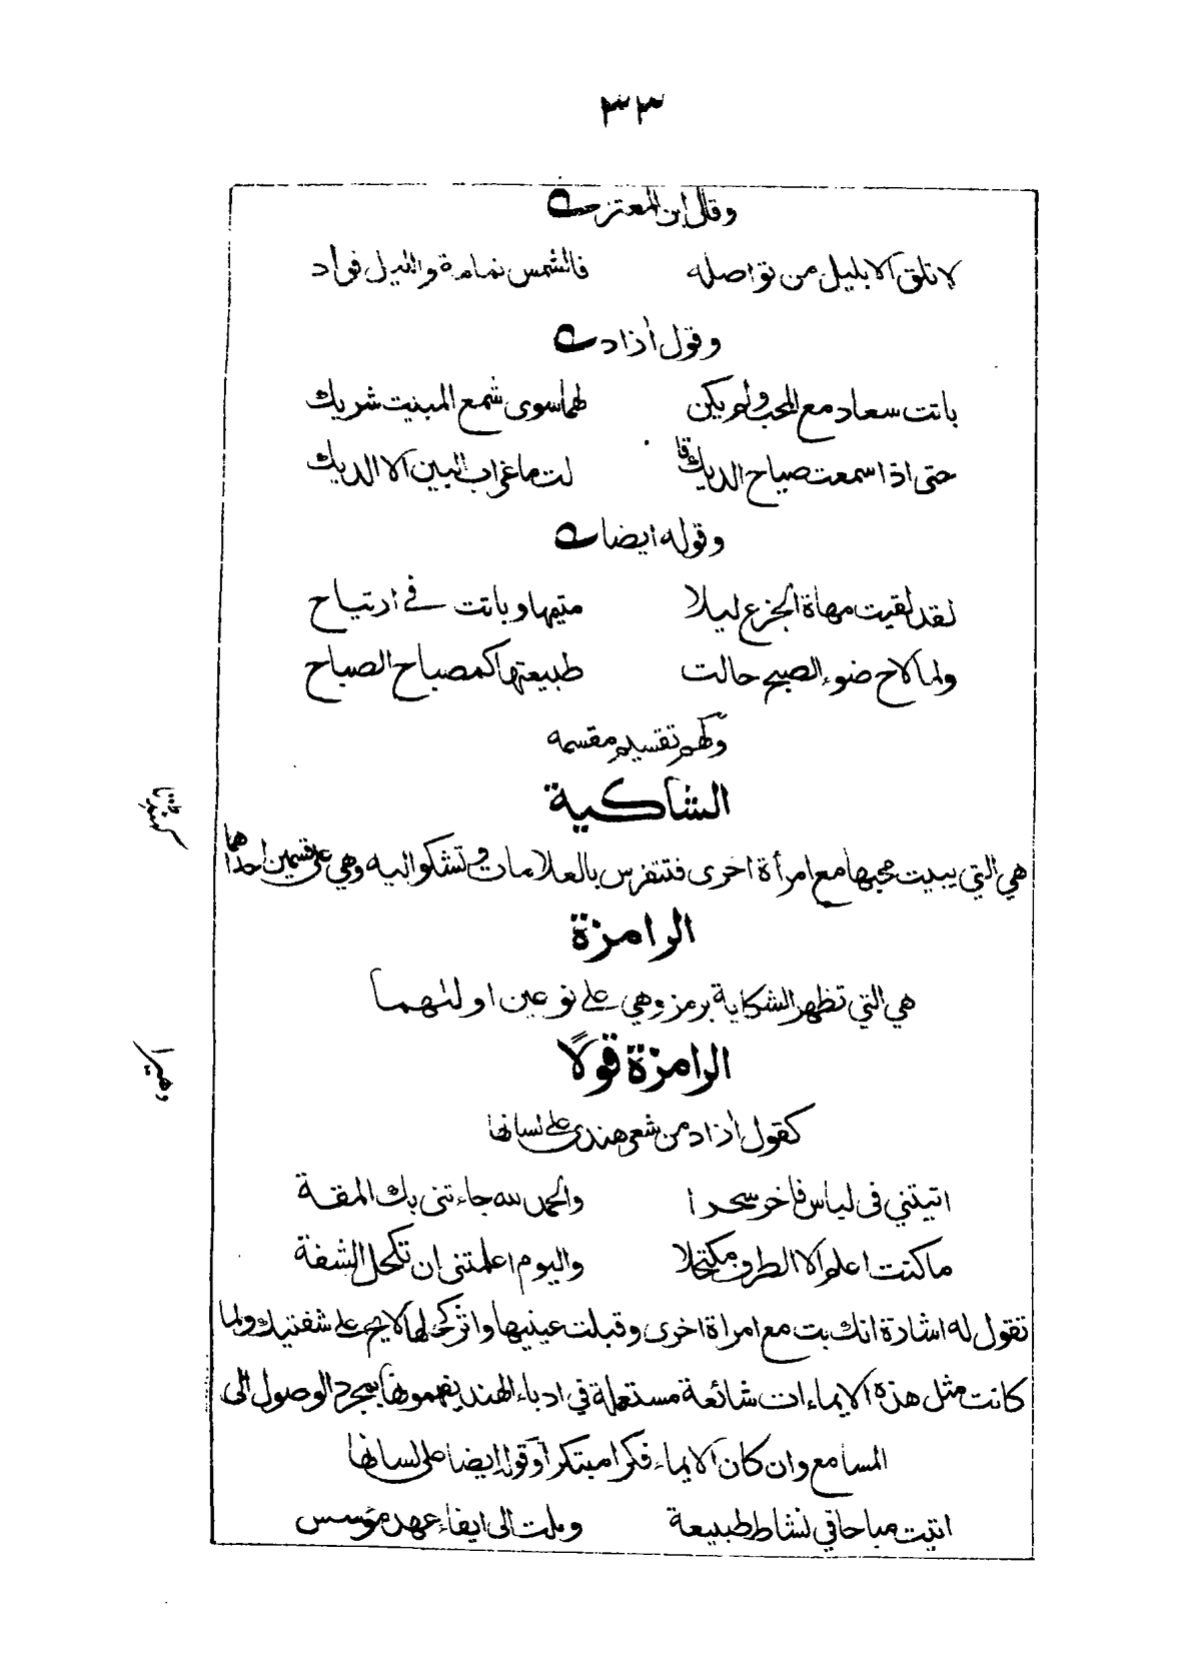 ٣٣
وقال ابن المعتز
لا تلق الا بليل من تواصله فالشمس نمامة والليل قواد
وقول أزاد
باتت سعاد مع المحب ولم يكن لهما سوى شمع المبيت شريك
حتى اذا سمعت صياح الديك قا لت ما غراب البين الا الديك
وقوله ايضا
لقد لقيت مهاة الجزع ليلا متيمها وباتت في ارتياح
ولما لاح ضوء الصبح حالت طبيعتها كمصباح الصباح
ولهم تقسيم مقسمه
الشاكية
هي التي يبيت محبها مع امرأة اخرى فتتفرس بالعلامات وتشكو اليه وهي على قسمين احداهما
الرامزة
هي التي تظهر الشكاية برمز وهي على نوعين اولٰهما
الرامزة قولًا
وهيرا
كقول أزاد من شعر هندى على لسانها
اتيتني فى لباس فاخر سحرا والحمد لله جاءتنى بك المقة
ما كنت اعلم الا الطرف مكتحلا واليوم اعلمتنى ان تكحل الشفة
تقول له اشارة انك بت مع امراة اخرى وقبلت عينيها واثر كحلها لايح على شفتيك ولما
كانت مثل هذه الايماءات شائعة مستعملة في ادباء الهند يفهمونها بمجرد الوصول الى
المسامع وان كان الايماء فكرا مبتكرا وقوله ايضا على لسانها
اتيت صباحا في نشاط طبيعة وملت الى ايفاء عهد مؤسس